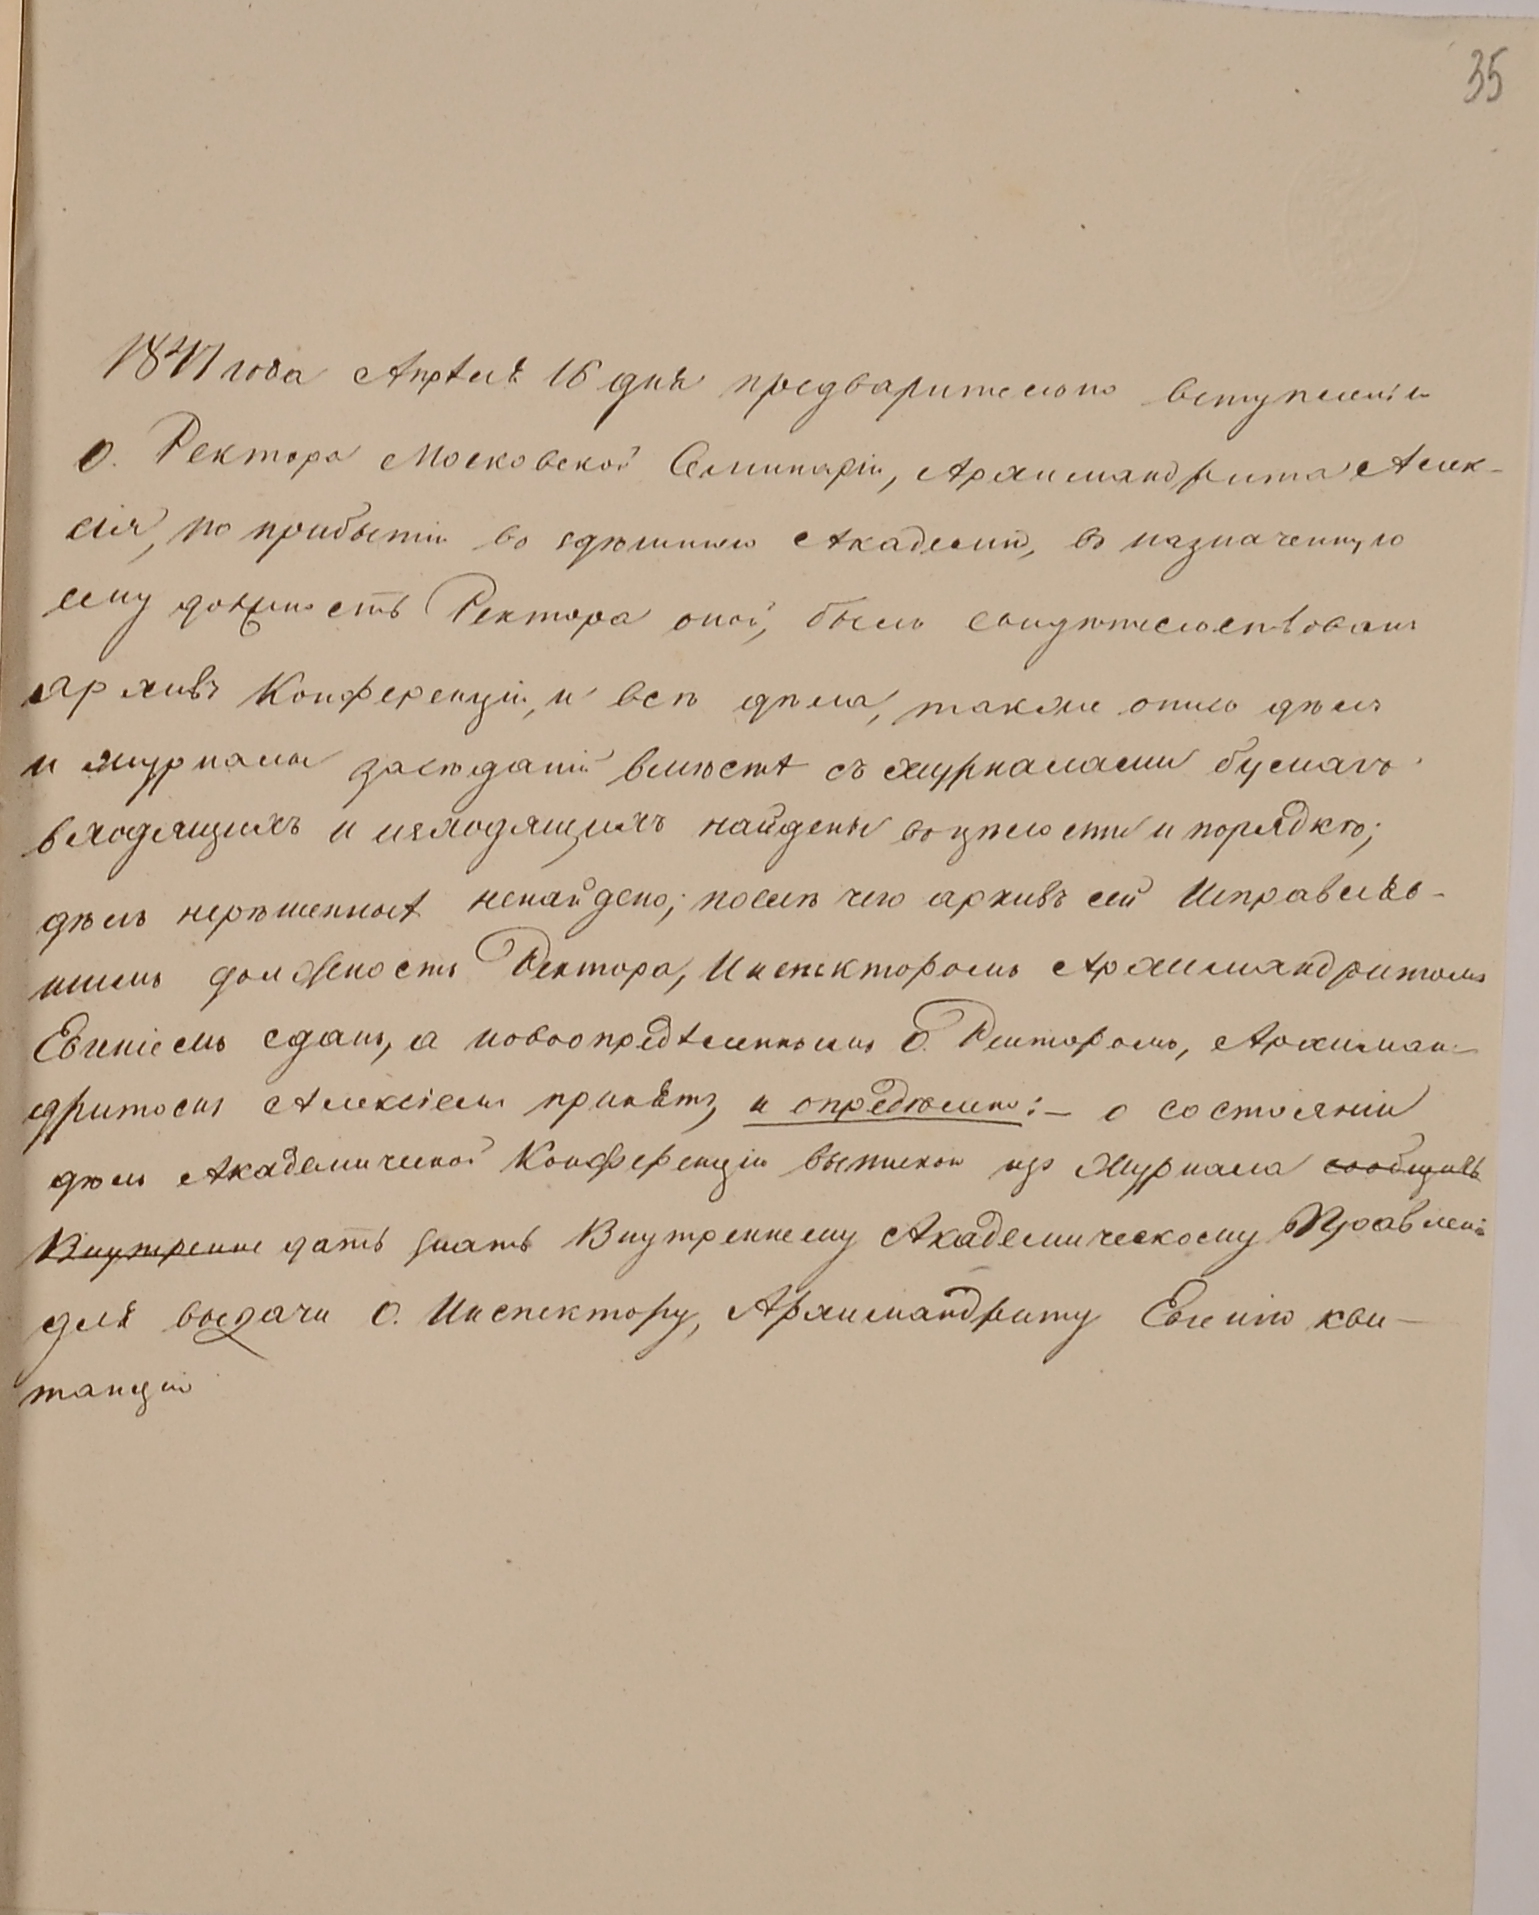 35
1847 года Апрѣля 16 дня предварительно вступленія
О. Ректора Московской Семинаріи, Архимандрита Алек-
сія, по прибытіи во здѣшнюю Академію, въ назначенную
ему должность Ректора оной, былъ свидѣтельствованъ
архивъ Конференціи, и всѣ дѣла, также опись дѣлъ
и журналы засѣданій вмѣстѣ съ журналами бумагъ
входящихъ и исходящихъ найдены въ цѣлости и порядкѣ;
дѣлъ нерѣшенныхъ ненайдено; послѣ чего архивъ сей Исправляв-
шимъ должность Ректора, Инспекторомъ Архимандритомъ
Евгеніемъ сданъ, а новоопредѣленнымъ О. Ректоромъ, Архиман-
дритомъ Алексіемъ принятъ, и опредѣлено: – о состояніи
дѣлъ Академической Конференціи выпискою изъ Журнала сообщить
Внутренне дать знать Внутреннему Академическому Правленію
для выдачи О. Инспектору, Архимандриту Евгенію кви-
танціи